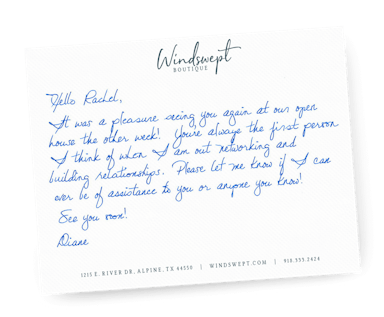 Windswept
BOUTIQUE
Hello Rachel,
It was a pleasure seeing you again at our open
house the other week! You're always the first person
I think of when I am out networking and
building relationships. Please let me know if I can
ever be of assistance to you or anyone you know!
See you soon!
Diane
1215 E. RIVER DR, ALPINE, TX 44550 | WINDSWEPT.COM | 910.555.2424